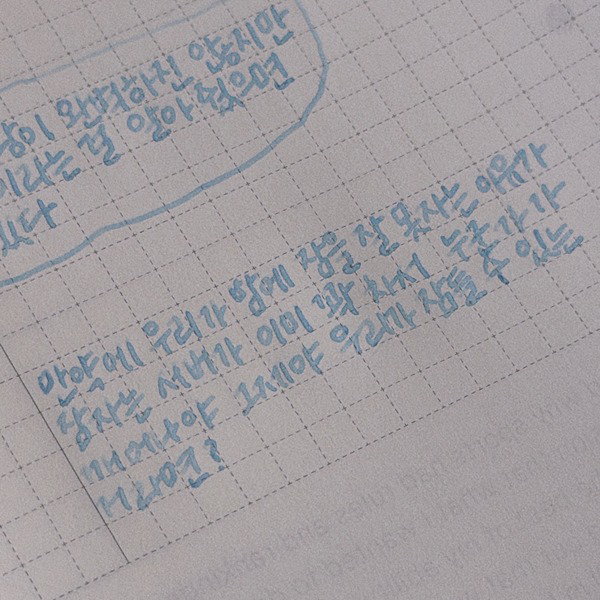 완벽하진 않지만
이라는 걸 알아줬으면
만약에 우리가 밤에 잠을 잘 못자는 이유가
잠자는 서버가 이미 꽉 차서 누군가가
깨어나야 그제야 우리가 잠들 수 있는
거라면?